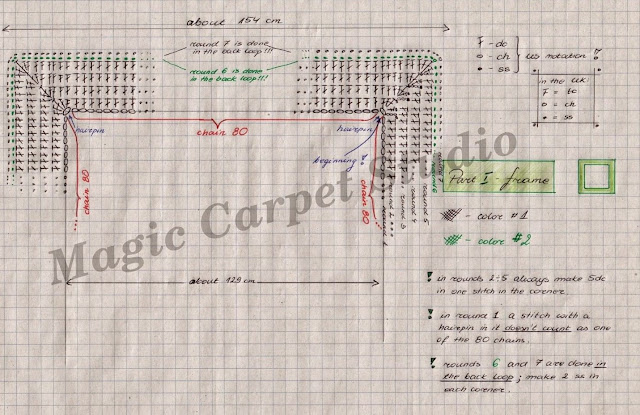 about 154 cm
round 7 is done
in the back loop!!!
round 6 is done
in the back loop!!!
hairpin
chain 80
hairpin
beginning!
chain 80
chain 80
round 1
round 2
round 3
round 4
round 5
about 129 cm
Magic Carpet Studio
F - dc
o - ch
• - ss
US notation!
in the UK
F = tc
o = ch
• = ss
Part I - frame
- color #1
- color #2
! in rounds 2÷5 always make 5dc
in one stitch in the corner.
! in round 1 a stitch with a
hairpin in it doesn't count as one
of the 80 chains.
! rounds 6 and 7 are done in
the back loop; make 2 ss in
each corner.